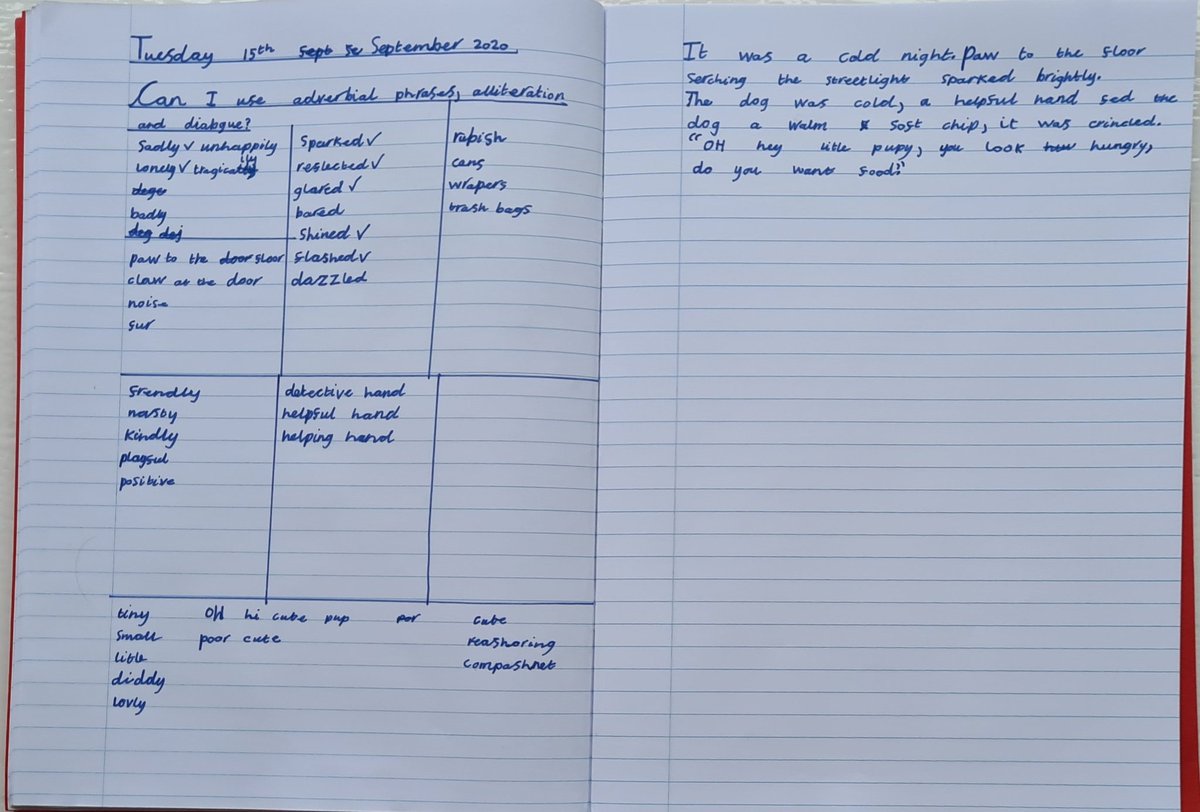 Tuesday 15th Sept Se September 2020
Can I use adverbial phrases, alliteration
and dialogue?
Sadly ✓ unhappily
Lonely ✓ tragically
badly
paw to the door floor
claw at the door
noise
fur
Sparked ✓
reflected ✓
glared ✓
bared
Shined ✓
flashed ✓
dazzled
rubish
cans
wrapers
trash bags
frendly
nosby
Kindly
playful
positive
detective hand
helpful hand
helping hand
tiny
Small
litle
diddy
lovly
OH hi cute pup por
poor cute
cute
reashoring
compashnet
It was a cold night. Paw to the floor
serching the streetlight sparked brightly.
The dog was cold, a helpful hand fed the
dog a walm soft chip, it was crincled.
"OH hey litle pupy, you look hungry,
do you want food?"